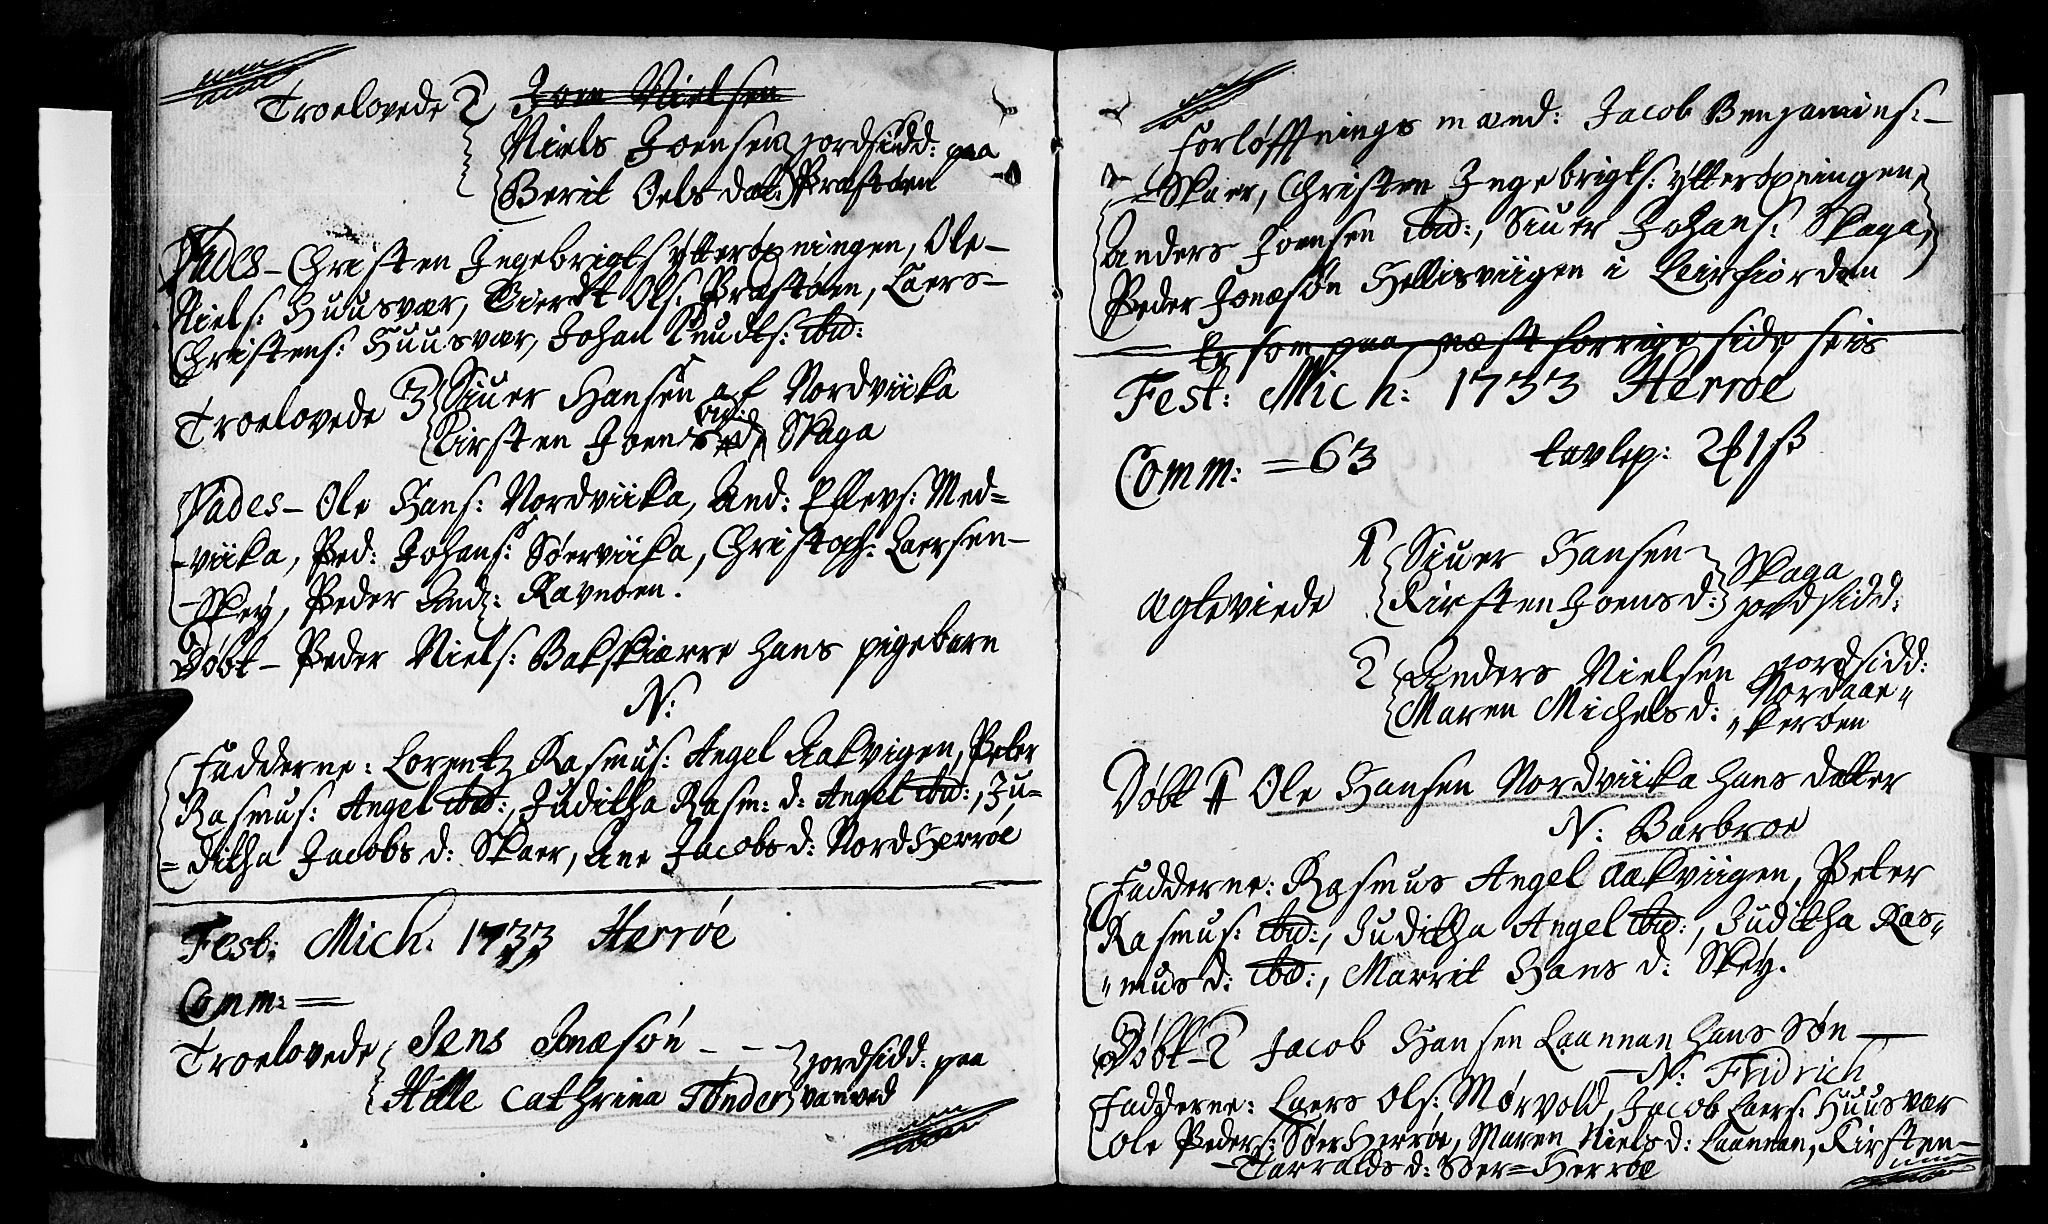 Troelovede 2 Joen Nielsen
Niels Joensen jordsidd: paa
Berit Oelsdat: Præstøen
Vades – Christen Ingebrigts: ytterøpningen, Ole –
Niels: Huusvær, Gierdt Ols: Præstøen, Laers –
Christens: Huusvær, Johan Knudts: ibid:
Troelovede 3 Siuer Hansen af Nordviika
Kirsten Joens d: Skaga
Vades – Ole Hans: Nordviika, And: Ellevs: Med=
-viika, Ped: Johans: Søerviika, Christoph: Laersen –
– Skey, Peder And: Ravnøen.
Døbt – Peder Niels: Bakskiærre hans pigebarn
N:
Fadderne: Lorentz Rasmus: Angel Aakvigen, Peter
Rasmus: Angel ibid:, Juditha Rasm: d: Angel ibid:, Ju-
= ditha Jacobs d: Skaer, Ane Jacobs d: Nord Herrøe
Fest: Mich: 1733 Herrøe
Comm: =
Troelovede Jens Jonæsøn - - - jordsidd: paa
Hille Cathrina Tønder vanved
Forløffnings mænd: Jacob Benjamins: –
– Skaer, Christen Ingebrigts: ytterøpningen,
Anders Joensen ibid:, Siuer Johans: Skaga,
Peder Jonæsøn Hellisviigen i Leirfiorden
Er som paa næst forrige side seis
Fest: Mich: 1733 Herrøe
Comm: = 63 tavlep: 2 1 ß
1 Siuer Hansen Skaga
Ægteviede Kirsten Joens d: jordsidd:
2 Anders Nielsen jordsidd:
Maren Michels d: Nordaae-
- kerøen
Døbt 1 Ole Hansen Nordviika hans datter
N: Barbroe
Fadderne: Rasmus Angel Aakviigen, Peter
Rasmus: ibid:, Juditha Angel ibid:, Juditha Ras-
- mus d: ibid:, Marrit Hans d: Skey.
Døbt – 2 Jacob Hansen Laannan hans Søn –
– N: Fridrich
Fadderne: Laers Ols: Mørvold, Jacob Laers: Huusvær
Ole Peders: Søer Herrøe, Maren Niels d: Laannan, Kirsten –
– Tarralds d: Søer=Herrøe